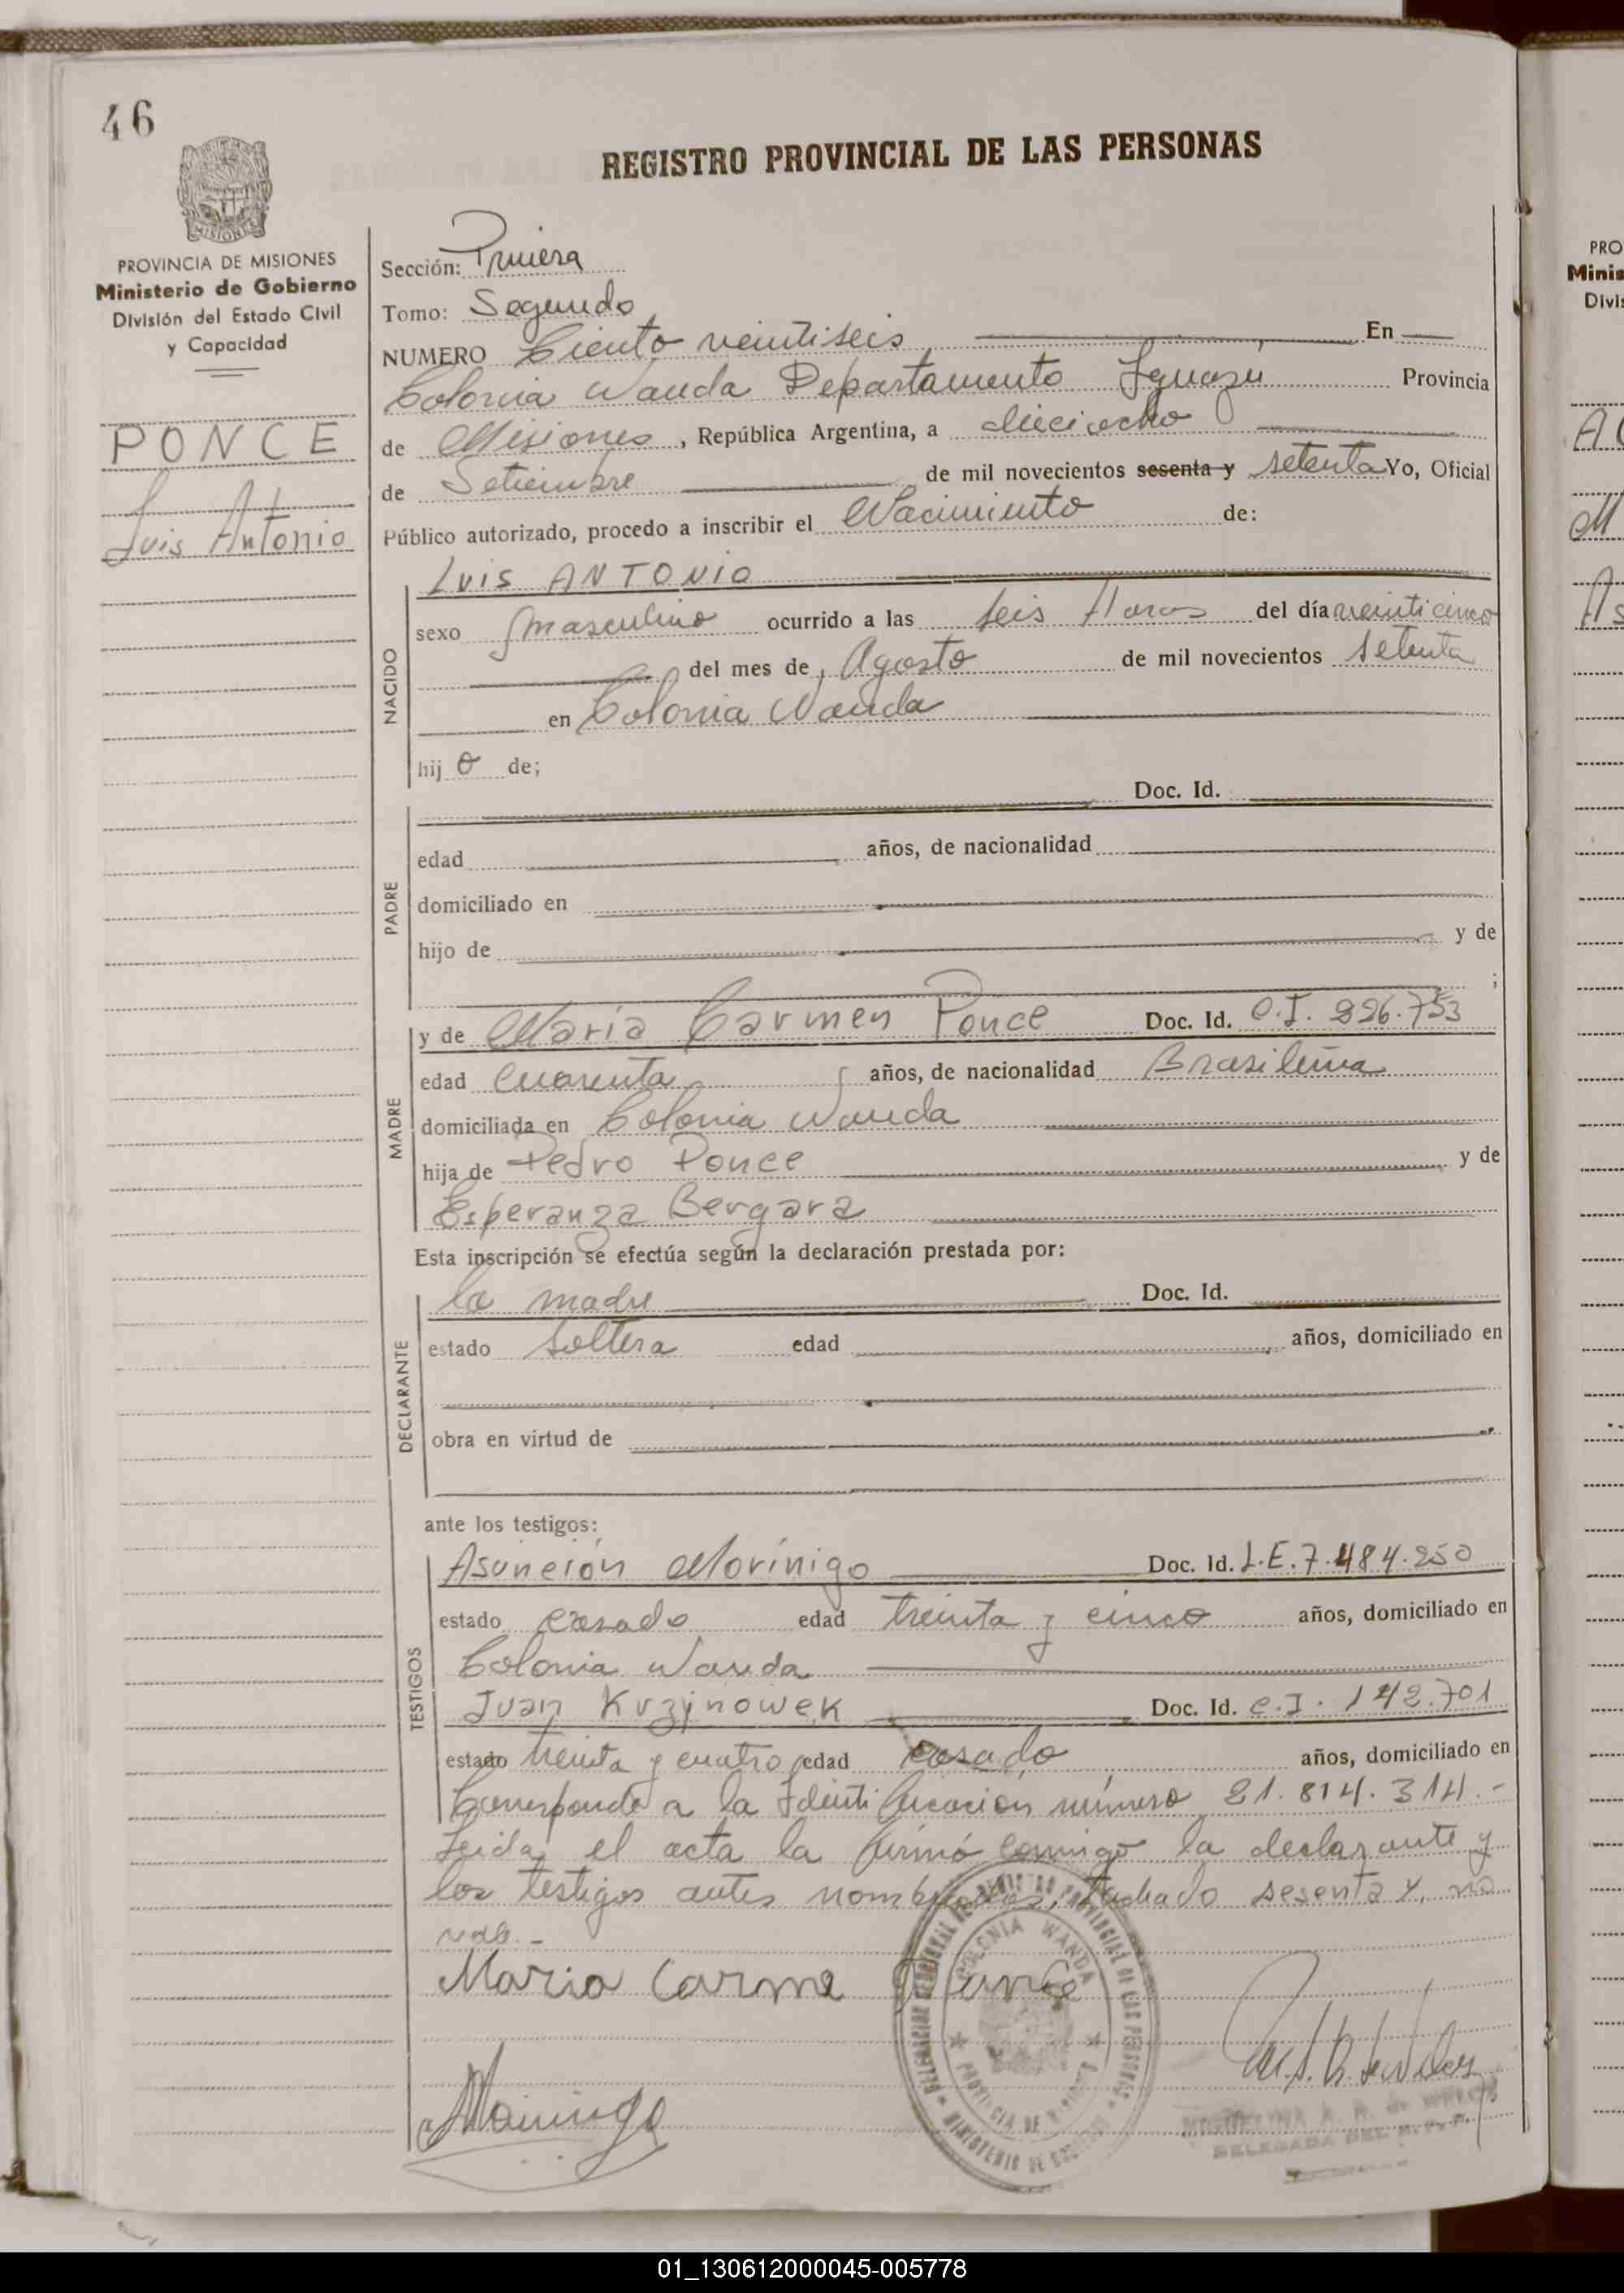 46
REGISTRO PROVINCIAL DE LAS PERSONAS
MISIONES
PROVINCIA DE MISIONES
Ministerio de Gobierno
División del Estado Civil
y Capacidad
PONCE
Luis Antonio
Sección: Primera
Tomo: Segundo
NUMERO Ciento veintiseis En
Colonia Wanda Departamento Iguazu Provincia
de Misiones, República Argentina, a dieciocho
de Setiembre de mil novecientos sesenta y setenta Yo, Oficial
Público autorizado, procedo a inscribir el Nacimiento de:
NACIDO
LUIS ANTONIO
sexo masculino ocurrido a las seis Horas del día veinticinco
del mes de Agosto de mil novecientos setenta
en Colonia Wanda
hij o de;
PADRE
Doc. Id.
edad años, de nacionalidad
domiciliado en
hijo de y de
;
MADRE
y de Maria Carmen Ponce Doc. Id. C.I. 226.753
edad Cuarenta años, de nacionalidad Brasileña
domiciliada en Colonia Wanda
hija de Pedro Ponce y de
Esperanza Bergara
Esta inscripción se efectúa según la declaración prestada por:
DECLARANTE
la madre Doc. Id.
estado soltera edad años, domiciliado en
obra en virtud de
ante los testigos:
TESTIGOS
Asunción Morínigo Doc. Id. L.E. 7.484.250
estado casado edad treinta y cinco años, domiciliado en
Colonia Wanda
Juan Kuzinowek Doc. Id. C.I. 142.701
estado treinta y cuatro edad casado años, domiciliado en
Corresponde a la Identificacion número 21.814.314.-
Leida el acta la firmó comigo la declarante y
los testigos antes nombrados, tachado sesenta y, no
vale.-
Maria Carme Ponce
COLONIA WANDA
PROVINCIA DE MISIONES
Morinigo
MIGUELINA A. R. de
DELEGADA DEL R.P.P.
01_130612000045-005778